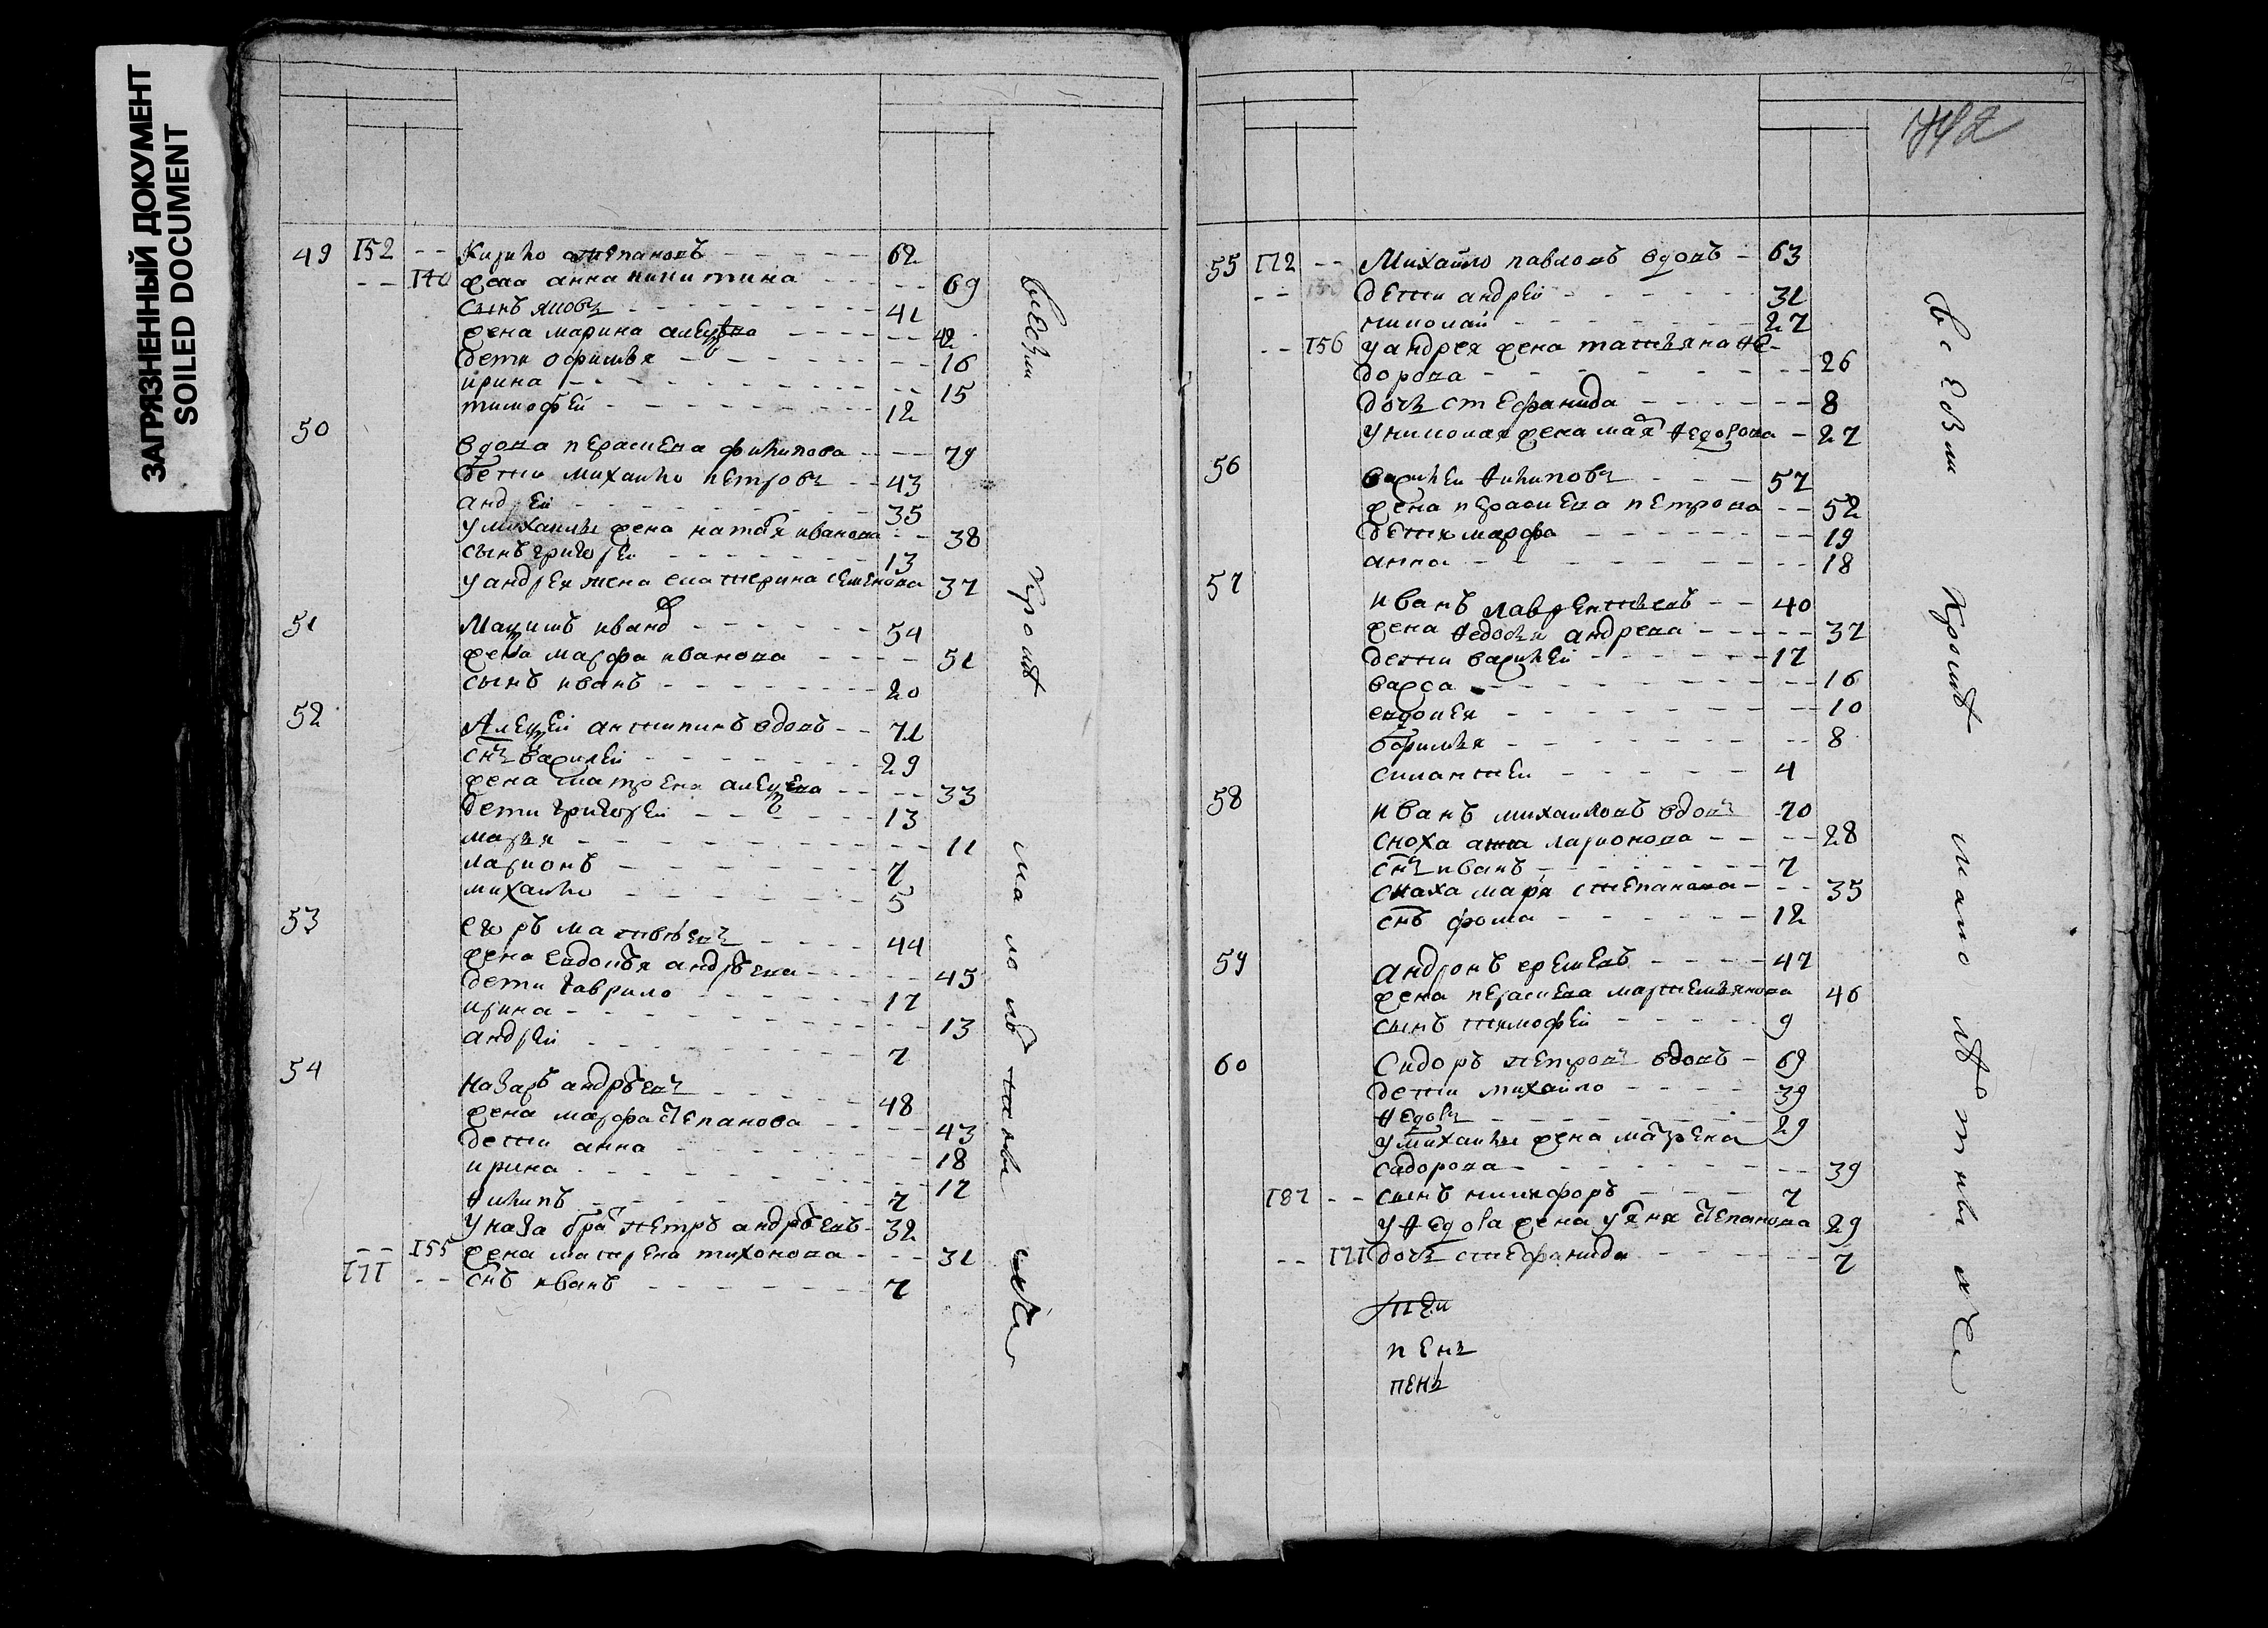 ЗАГРЯЗНЕННЫЙ ДОКУМЕНТ
SOILED DOCUMENT
49 152 -- Кирило степановъ 62
-- 140 жена анна никитина 69
сынъ яковъ 41
жена марина алеѯѣва 42
дети офимья 16
ирина 15
тимофей 12
50
вдова перасковья филипова 79
дети михайло петровъ 43
андрей 35
у михаилы жена натал иванова 38
сынъ григорей 13
у андрея жена екатерина семенова 37
51 Маѯимъ иванов 54
жена марфа иванова 51
сынъ иванъ 20
52 Алеѯей антипинъ вдовъ 71
снъ василей 29
жена матрена алеѯева 33
дети григорей 13
марья 11
ларионъ 7
михайло 5
53 егоръ матвѣевъ 44
жена евдокъя андрѣева 45
дети гаврило 17
ирина 13
андрей 7
54
назаръ андрѣевъ 48
жена марфа степанова 43
дети анна 18
ирина 17
филипъ 7
у наза брат петръ андрѣевъ 32
-- 155 жена матрена тихонова 31
171 -- снъ иванъ 7
всѣми кроме малолѣтныхъ
1742
55 172 -- Михайло павловъ вдовъ 63
-- дети андрей 31
николай 27
-- 156 у андрея жена татьяна фе-
дорова 26
дочь стефанида 8
у николая жена мая федорова 27
56
василей филиповъ 57
жена перасковья петрова 52
дети марфа 19
анна 18
57
иванъ лаврентьевъ 40
жена федосья андрева 37
дети василей 17
васса 16
евдокея 10
офимья 8
силантей 4
58
иванъ михаиловъ вдовъ 70
сноха анна ларионова 28
снъ иванъ 7
снаха маря степанова 35
снъ фома 12
59 андронъ еремевъ 47
жена перасковья мартемьянова 46
сынъ тимофей 9
60 Сидоръ петровъ вдовъ 69
дети михайло 39
федоръ 29
у михаилы жена матрена
сидорова 39
187 -- сынъ никифоръ 7
у федора жена уляна степанова 29
-- 171 дочь стефанида 7
пень
пень
всѣми кроме малолѣтныхъ